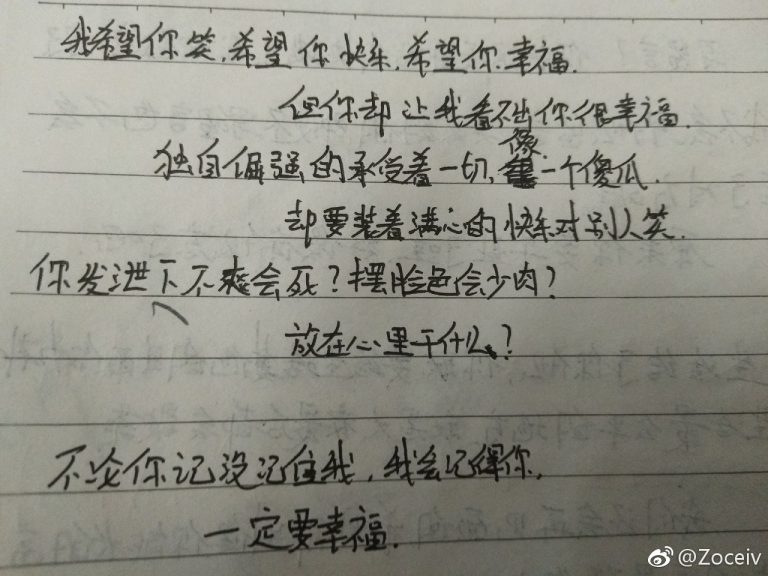 我希望你笑,希望你快乐,希望你幸福.
但你却让我看不出你很幸福.
独自倔强的承受着一切,像一个傻瓜.
却要装着满心的快乐对别人笑.
你发泄下不爽会死?摆脸色会少肉?
放在心里干什么?
不论你记没记住我,我会记得你,
一定要幸福.
@Zoceiv